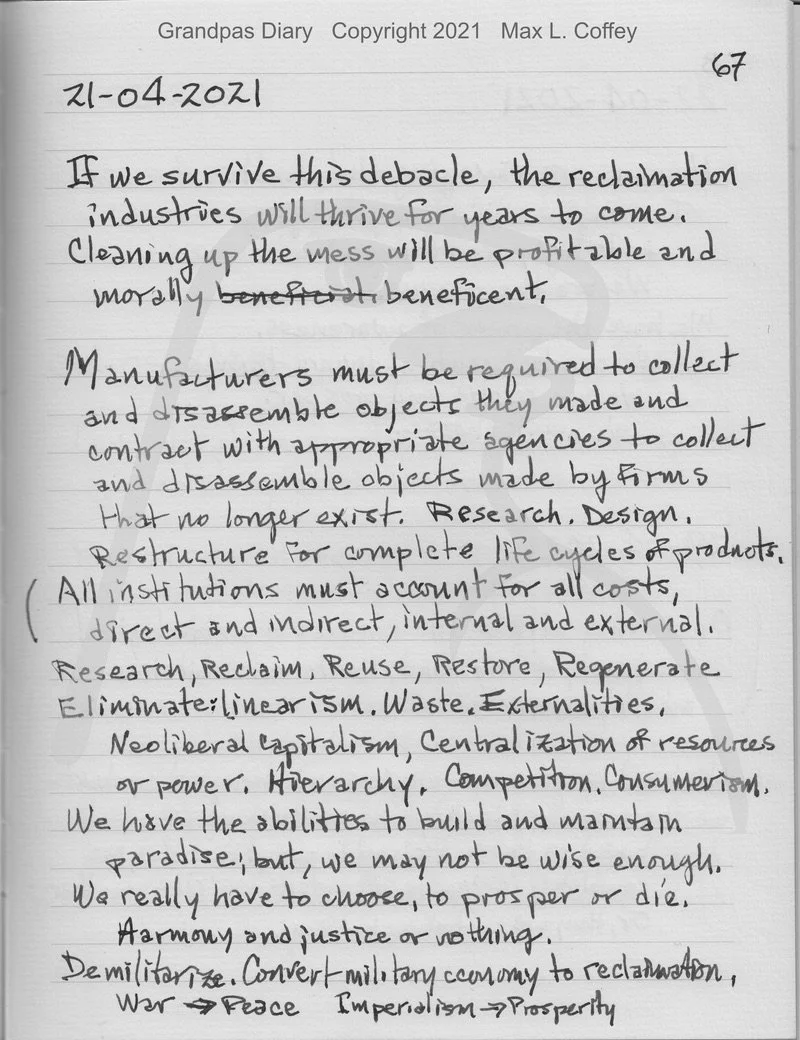 Grandpas Diary Copyright 2021 Max L. Coffey
67
21-04-2021
If we survive this debacle, the reclaimation
industries will thrive for years to come.
Cleaning up the mess will be profitable and
morally beneficial. beneficent.
Manufacturers must be required to collect
and disassemble objects they made and
contract with appropriate agencies to collect
and disassemble objects made by firms
that no longer exist. Research. Design.
Restructure for complete life cycles of products.
All institutions must account for all costs,
direct and indirect, internal and external.
Research, Reclaim, Reuse, Restore, Regenerate
Eliminate: linearism. Waste. Externalities.
Neoliberal capitalism, Centralization of resources
or power. Hierarchy. Competition. Consumerism.
We have the abilities to build and maintain
paradise; but, we may not be wise enough.
We really have to choose, to prosper or die.
Harmony and justice or nothing.
Demilitarize. Convert military economy to reclaimation.
War → Peace Imperialism → Prosperity